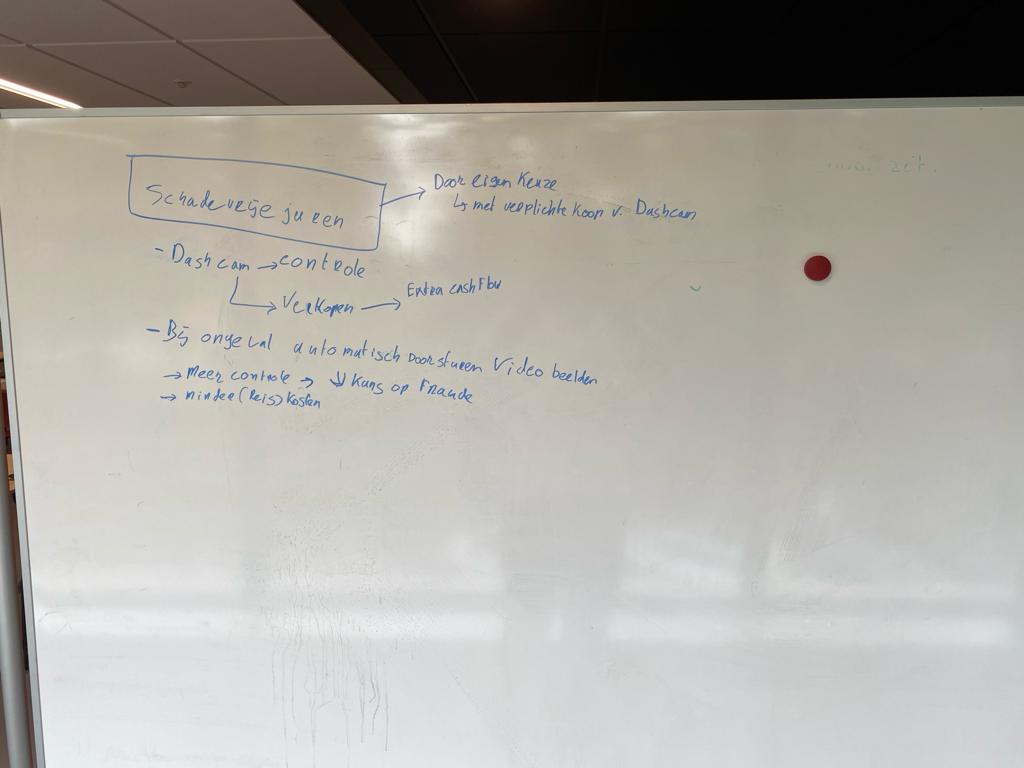 Schadevrije juren → Door eigen keuze
↳ met verplichte koop v. Dashcam
- Dashcam → controle
↳ Verkopen → Extra cashflow
- Bij ongeval automatisch doorsturen Videobeelden
→ Meer controle → ↓ Kans op Fraude
→ minder (Reis) kosten